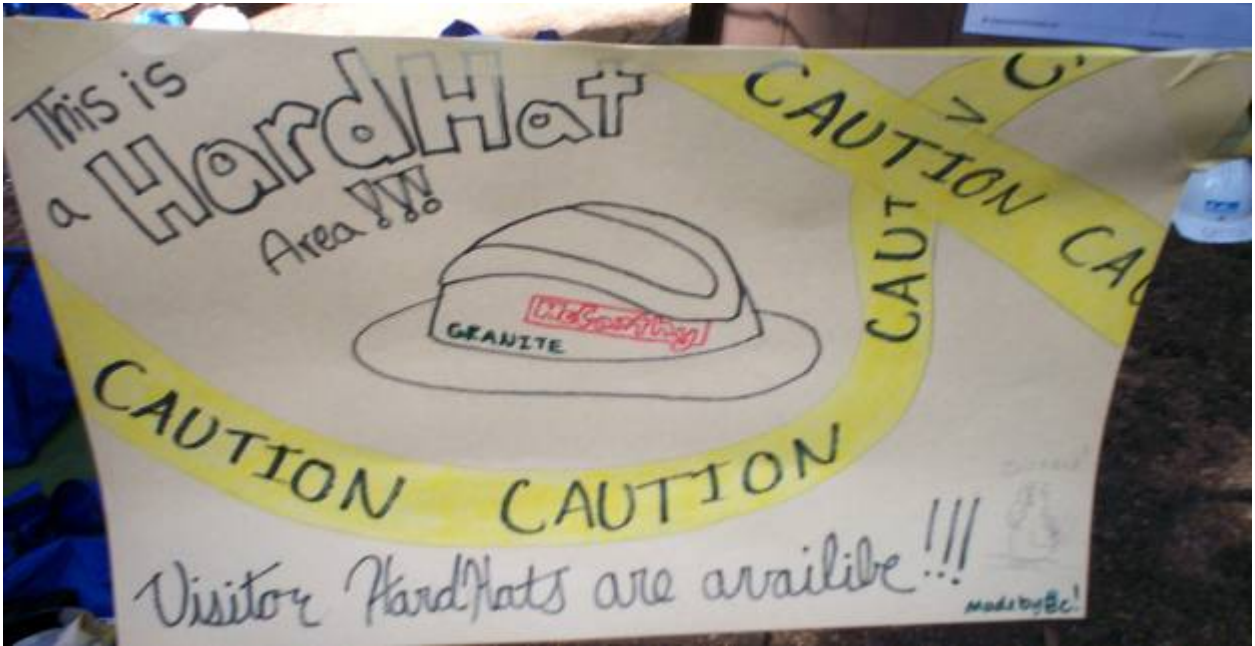 This is
a HardHat
Area!!!
CAUTION CAU
C
CAUT
McCarthy
GRANITE
CAUTION CAUTION
Visitor HardHats are availibe!!!
Made by